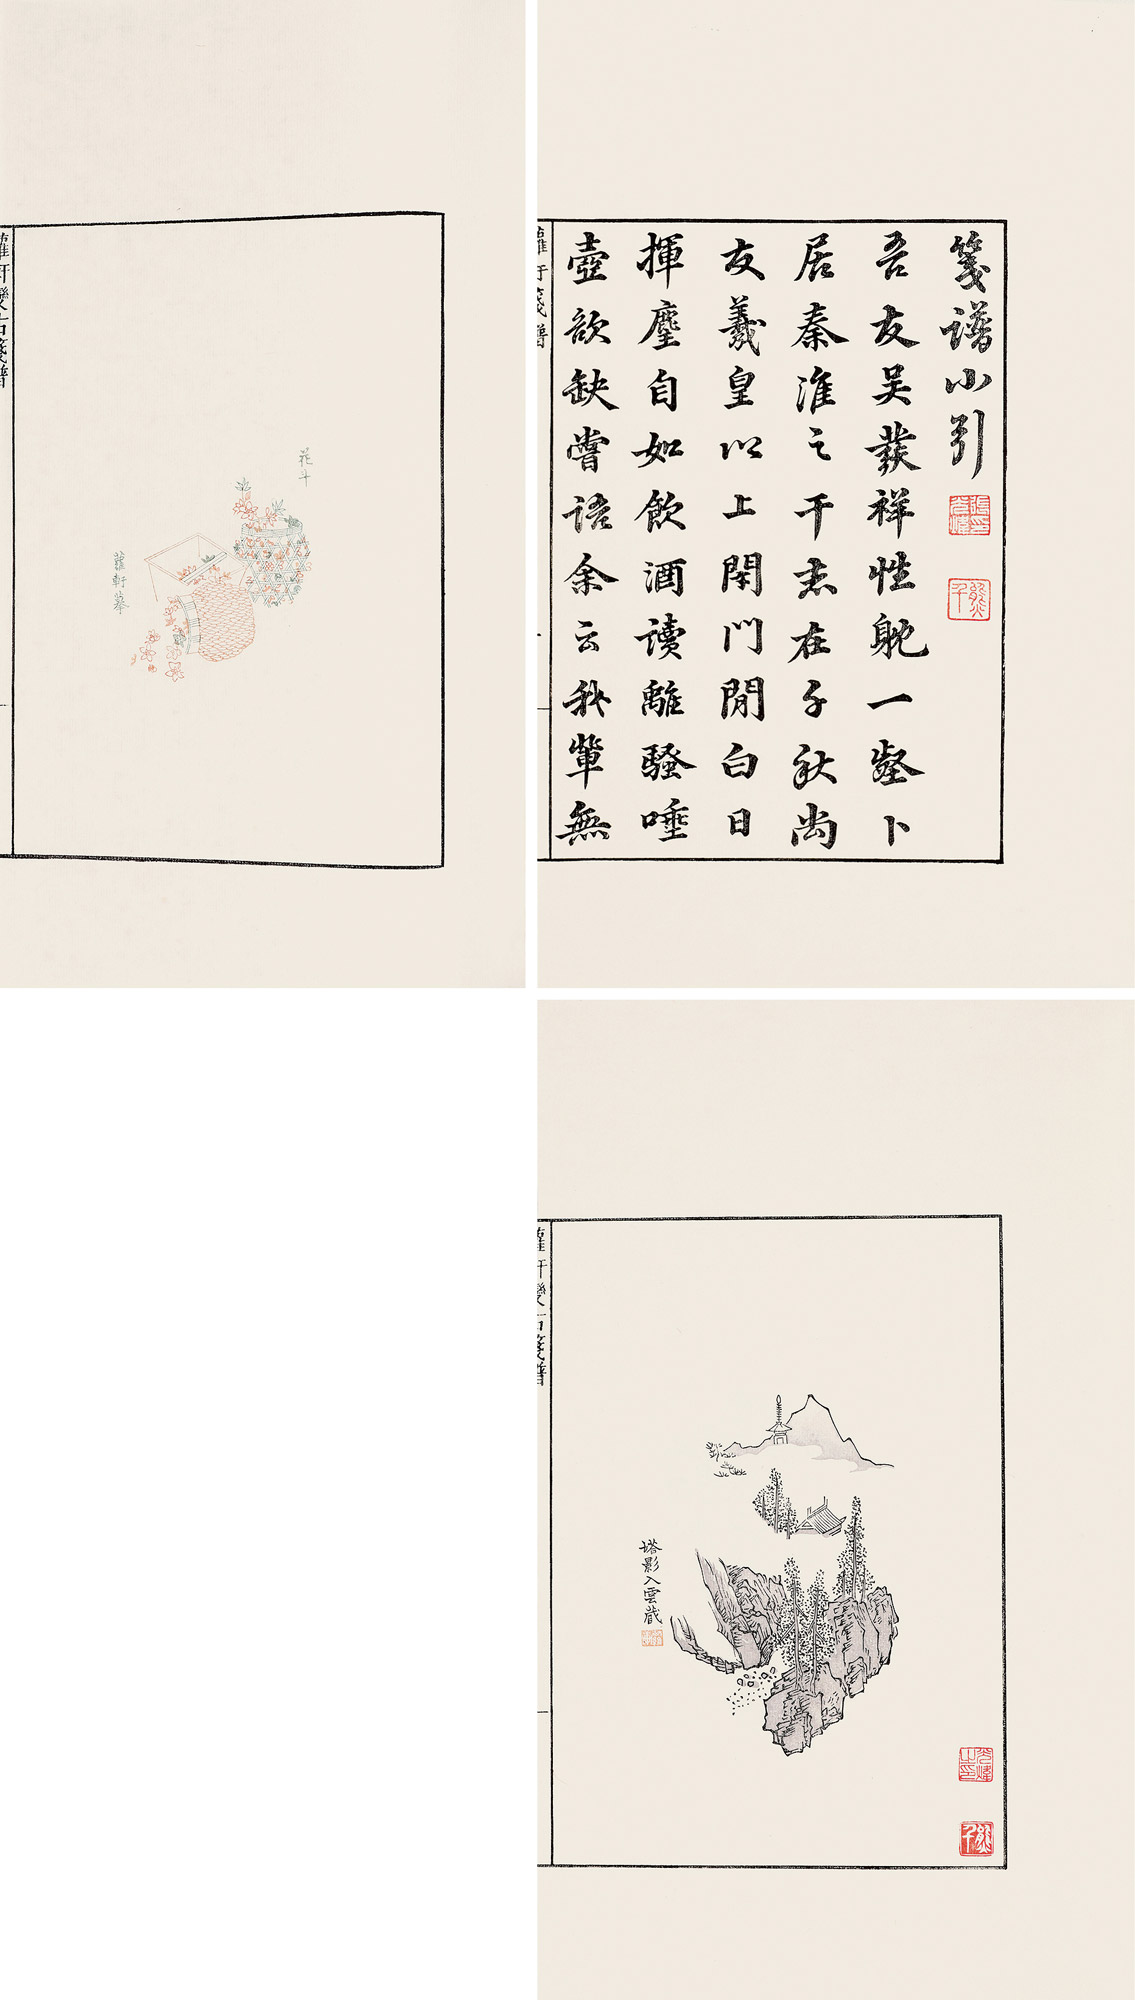 花斗
蘿軒摹
蘿軒變古箋譜
箋譜小引
吾友吴發祥性躭一壑卜
居秦淮之干志在千秋尚
友羲皇以上閑門閒白日
揮麈自如飲酒讀離騷唾
壺欲缺嘗語余云我輩無
蘿軒箋譜
塔影入雲藏
蘿軒變古箋譜